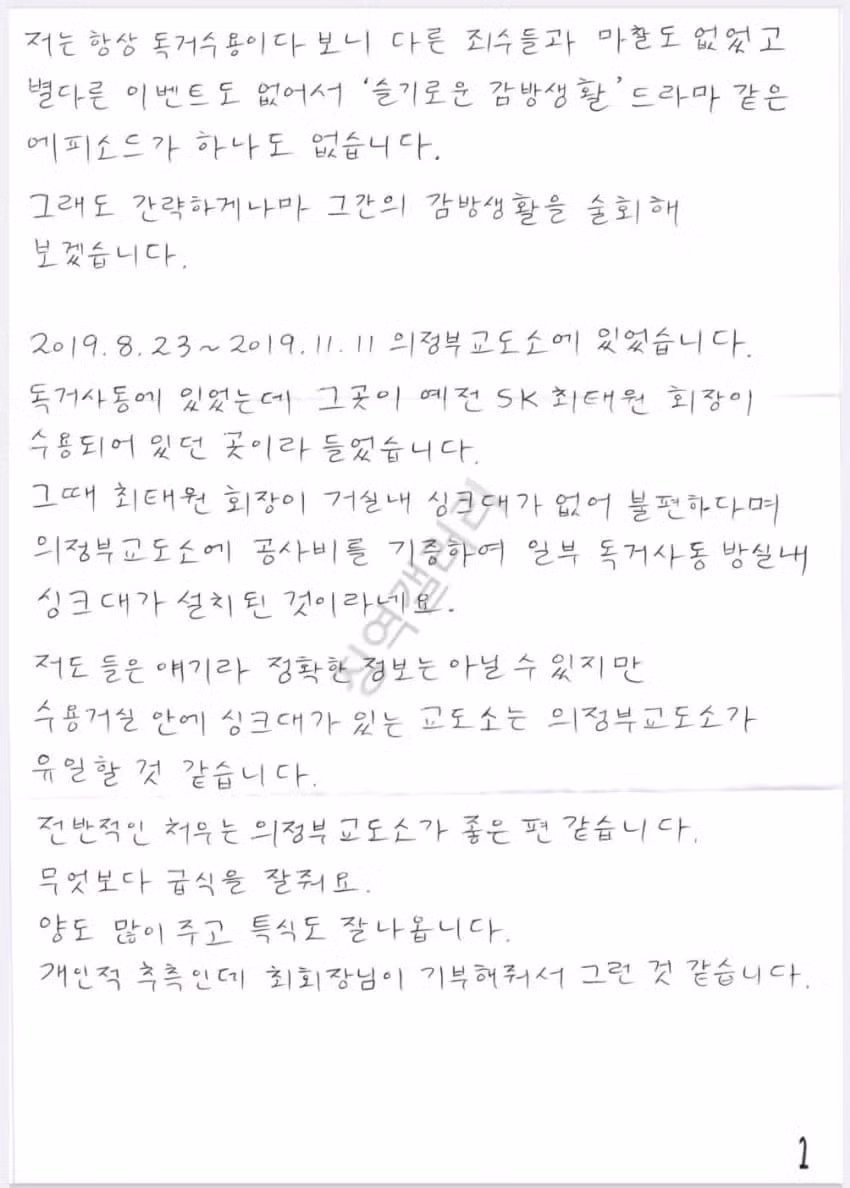 저는 항상 독거수용이다 보니 다른 죄수들과 마찰도 없었고
별다른 이벤트도 없어서 '슬기로운 감방생활' 드라마 같은
에피소드가 하나도 없습니다.
그래도 간략하게나마 그간의 감방생활을 술회해
보겠습니다.
2019.8.23~2019.11.11 의정부교도소에 있었습니다.
독거사동에 있었는데 그곳이 예전 SK 최태원 회장이
수용되어 있던 곳이라 들었습니다.
그때 최태원 회장이 거실내 싱크대가 없어 불편하다며
의정부교도소에 공사비를 기증하여 일부 독거사동 방실내
싱크대가 설치된 것이라네요.
저도 들은 얘기라 정확한 정보는 아닐 수 있지만
수용거실 안에 싱크대가 있는 교도소는 의정부교도소가
유일할 것 같습니다.
전반적인 처우는 의정부교도소가 좋은 편 같습니다.
무엇보다 급식을 잘줘요.
양도 많이 주고 특식도 잘나옵니다.
개인적 추측인데 최회장님이 기부해줘서 그런 것 같습니다.
1
징역갤러리